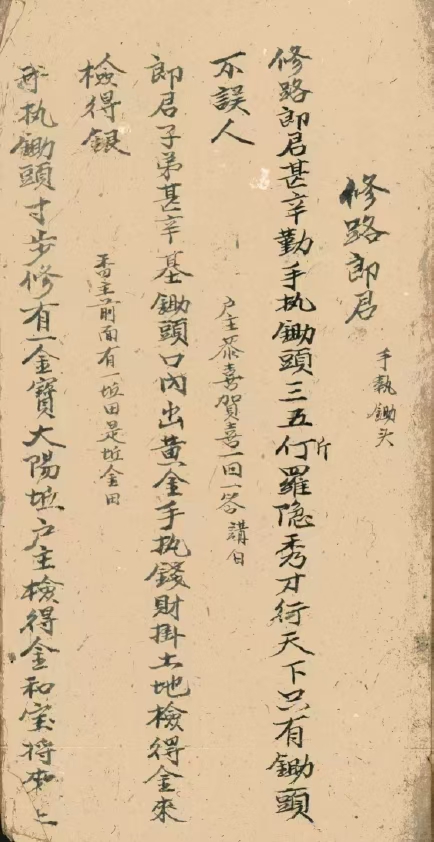 修路郎君
手執鋤头
修路郎君甚辛勤手执鋤頭三五斤羅隐秀才行天下只有鋤頭
不誤人
户主恭喜賀喜一回一答講白
郎君子弟甚辛基鋤頭口內出黄金手执錢財掛土地檢得金來
檢得銀
香主前面有一坵田是坵金田
手执鋤頭寸步修有一金寶大陽坵户主檢得金和宝将來上